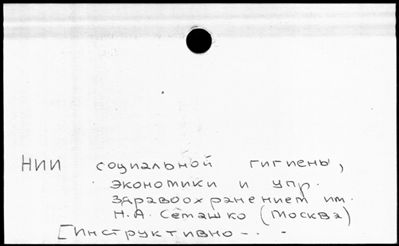 НИИ социальной гигиены,
экономики и упр.
здравоохранением им.
Н.А. Семашко (Москва)
[Инструктивно- . .